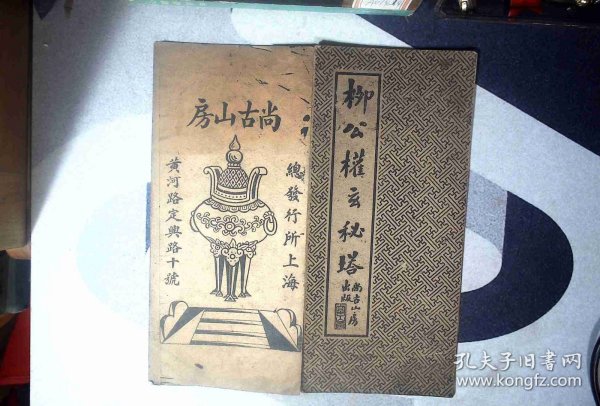 柳公權玄秘塔
尚古山房
出版
尚古山房
總發行所上海
黃河路定興路十號
孔夫子旧书网
www.kongfz.com